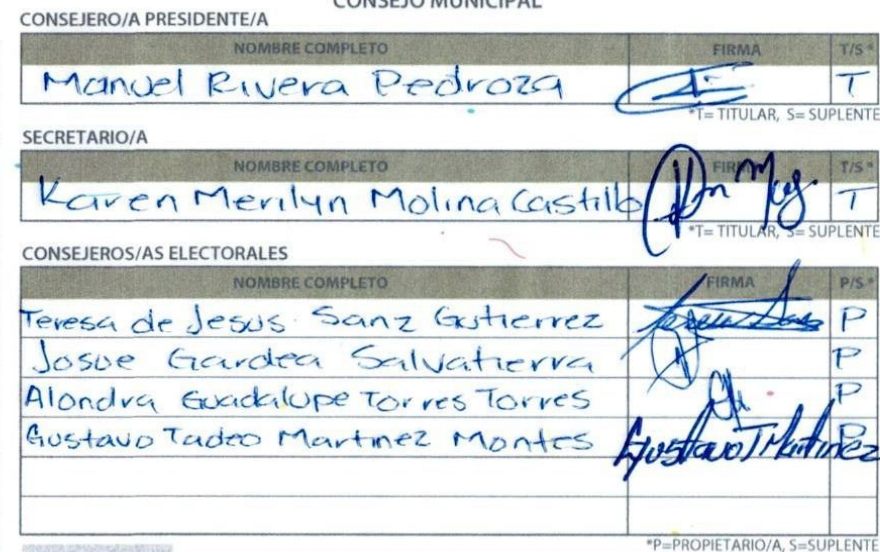 CONSEJO MUNICIPAL
CONSEJERO/A PRESIDENTE/A
NOMBRE COMPLETO FIRMA T/S*
Manuel Rivera Pedroza T
*T= TITULAR, S= SUPLENTE
SECRETARIO/A
NOMBRE COMPLETO FIRMA T/S*
Karen Merilyn Molina Castillo T
*T= TITULAR, S= SUPLENTE
CONSEJEROS/AS ELECTORALES
NOMBRE COMPLETO FIRMA P/S*
Teresa de Jesus Sanz Gutierrez Teresa Sanz P
Josue Gardea Salvatierra P
Alondra Guadalupe Torres Torres P
Gustavo Tadeo Martinez Montes Gustavo T Martinez P
*P=PROPIETARIO/A, S=SUPLENTE